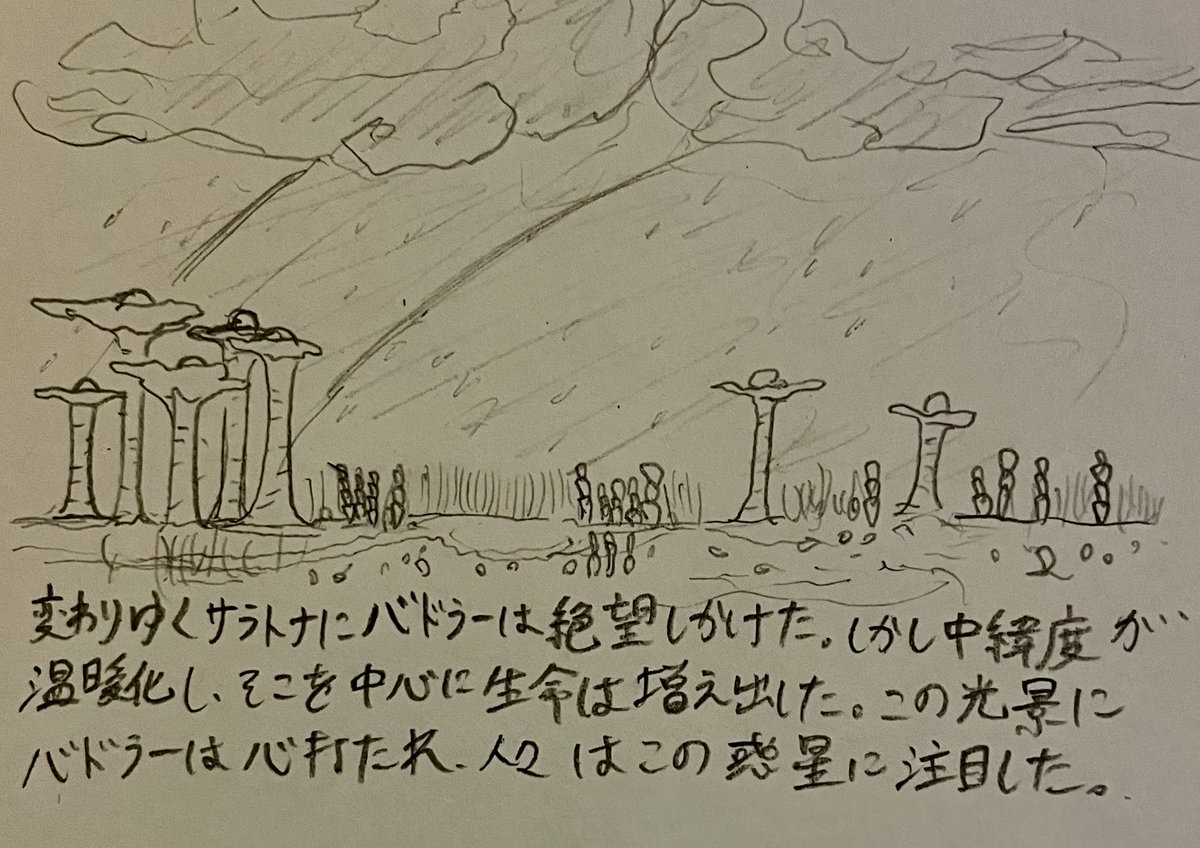 変わりゆくサラトナにバドラーは絶望しかけた。しかし中緯度が
温暖化し、そこを中心に生命は増え出した。この光景に
バドラーは心打たれ、人々はこの惑星に注目した。